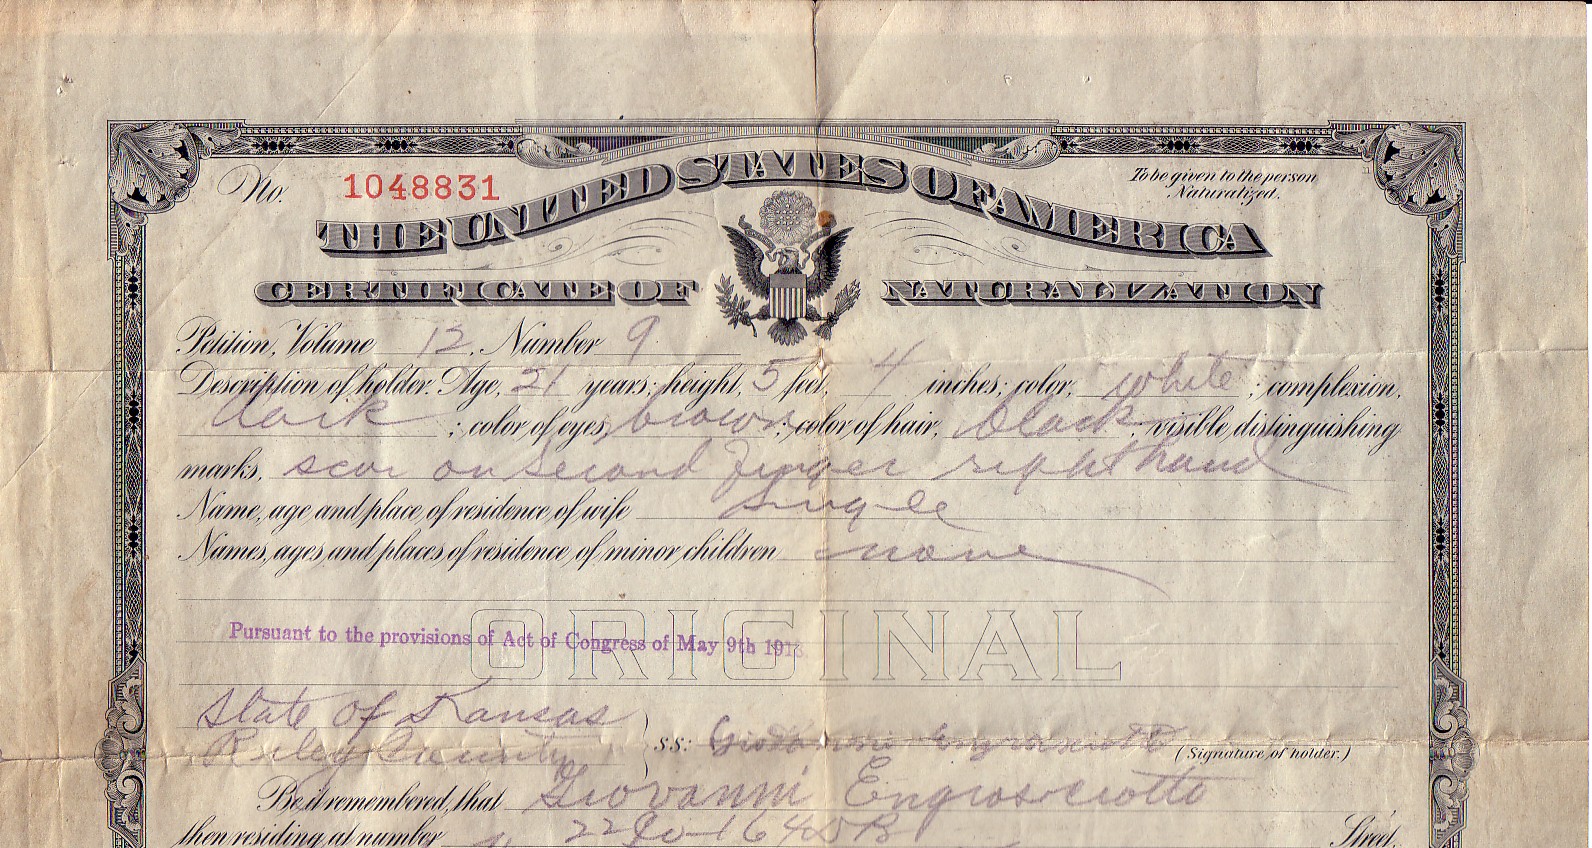 No. 1048831
To be given to the person
Naturalized.
THE UNITED STATES OF AMERICA
CERTIFICATE OF NATURALIZATION
Petition, Volume 12, Number 9
Description of holder: Age, 21 years; height, 5 feet, 4 inches; color, white; complexion,
dark; color of eyes, brown; color of hair, black; visible distinguishing
marks, scar on second finger right hand
Name, age and place of residence of wife single
Names, ages and places of residence of minor children none
ORIGINAL
Pursuant to the provisions of Act of Congress of May 9th 1918.
State of Kansas
Riley County } ss: Giovanni
(Signature of holder.)
Be it remembered, that Giovanni Engrasciotta
then residing at number 22 Co 164 D B Street,